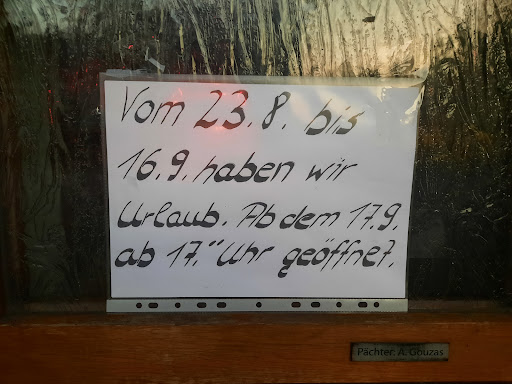 Vom 23.8. bis
16.9. haben wir
Urlaub. Ab dem 17.9.
ab 17.°° Uhr geöffnet.
Pächter: A. Gouzas